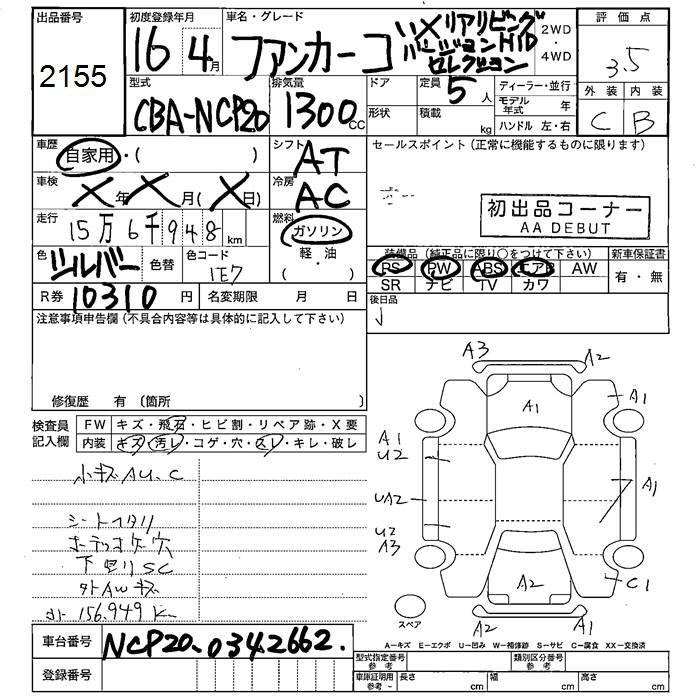 出品番号 初度登録年月 車名・グレード 評価点
2155 16年4月 ファンカーゴ X リアリビングバージョンHIDセレクション 2WD・4WD 3.5
型式 排気量 ドア 定員 ディーラー・並行 外装 内装
CBA-NCP20 1300cc 5人 モデル年式 年 C B
形状 積載 kg ハンドル 左・右
車歴 自家用・( ) シフト AT セールスポイント(正常に機能するものに限ります)
車検 X年X月(X日) 冷房 AC
初出品コーナー
AA DEBUT
走行 15万6千948km 燃料 ガソリン・軽・油 ( )
色 シルバー 色替 色コード 1E7
装備品(純正品に限り○をつけて下さい) 新車保証書
PS PW ABS エアB AW 有・無
SR ナビ TV カワ
R券 10310円 名変期限 月 日 後日品
注意事項申告欄(不具合内容等は具体的に記入して下さい)
修復歴 有〔箇所 〕
検査員記入欄 FW キズ・飛石・ヒビ割・リペア跡・X要
内装 キズ・汚レ・コゲ・穴・スレ・キレ・破レ
小キズAU.C
シートヘタリ
下廻りSC
外AWキズ
156.949K
A3 A2
A1 A1
A1
U2
UA2 A1
U2
A3
A2 C1
スペア A2 A1
A-キズ E-エクボ U-凹み W-補修跡 S-サビ C-腐食 XX-交換済
車台番号 NCP20-0342662.
型式指定番号 参考 類別区分番号 参考
登録番号 車庫証明用 参考 長さ cm 幅 cm 高さ cm